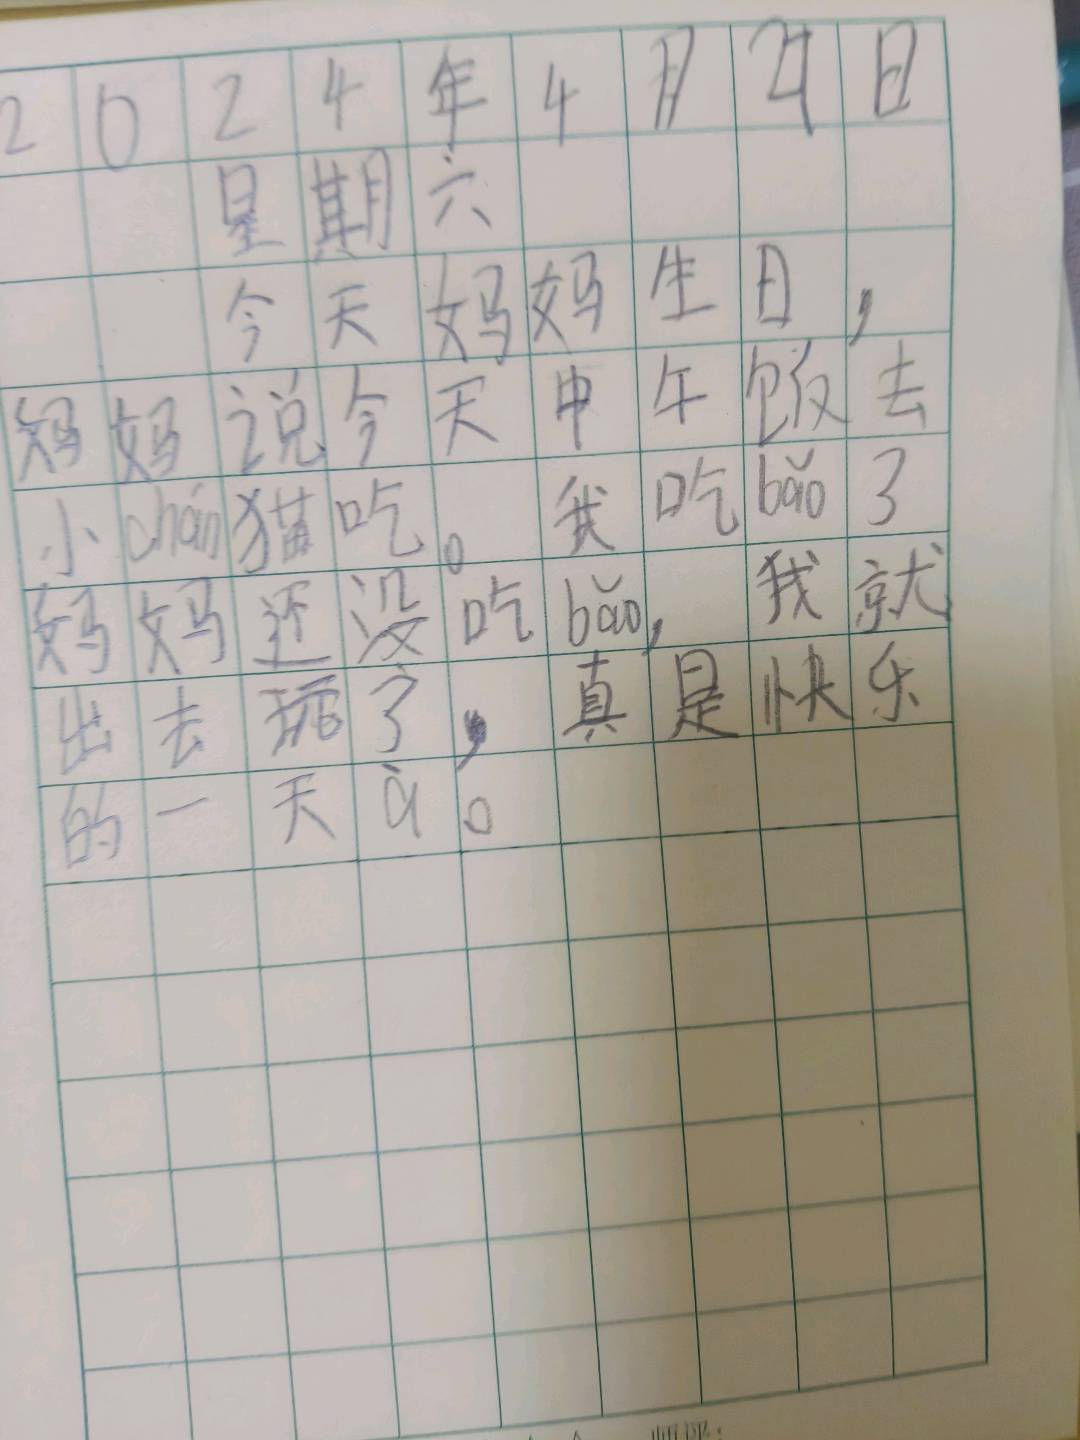 2024年4月21日
星期六
今天妈妈生日,
妈妈说今天中午饭去
小chán猫吃。我吃bǎo了
妈妈还没吃bǎo,我就
出去玩了,真是快乐
的一天à。